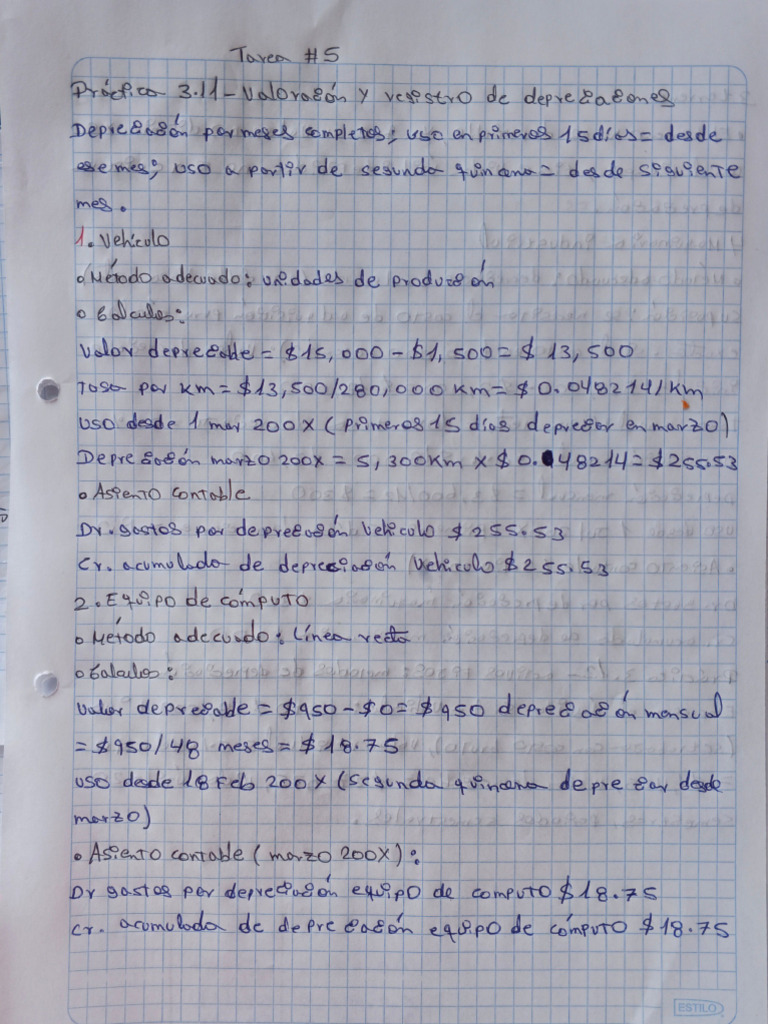 Tarea #5
Práctica 3.11 - Valoración y registro de depreciaciones
Depreciación por meses completos; uso en primeros 15 días = desde
ese mes; uso a partir de segunda quincena = desde siguiente
mes.
1. Vehículo
• Método adecuado: unidades de producción
• Calculos:
Valor depreciable = $15,000 - $1,500 = $13,500
Tasa por km = $13,500/280,000 km = $0.048214/km
uso desde 1 mar 200X (primeros 15 días depreciar en marzo)
Depreciación marzo 200X = 5,300km x $0.048214 = $255.53
• Asiento contable
Dr. gastos por depreciación Vehículo $255.53
Cr. acumulado de depreciación Vehículo $255.53
2. Equipo de cómputo
• Método adecuado: línea recta
• Calculos:
Valor depreciable = $950 - $0 = $950 depreciación mensual
= $950/48 meses = $18.75
uso desde 18 Feb 200X (segunda quincena depreciar desde
marzo)
• Asiento contable (marzo 200X):
Dr gastos por depreciación equipo de computo $18.75
Cr. acumulada de depreciación equipo de cómputo $18.75
ESTILO